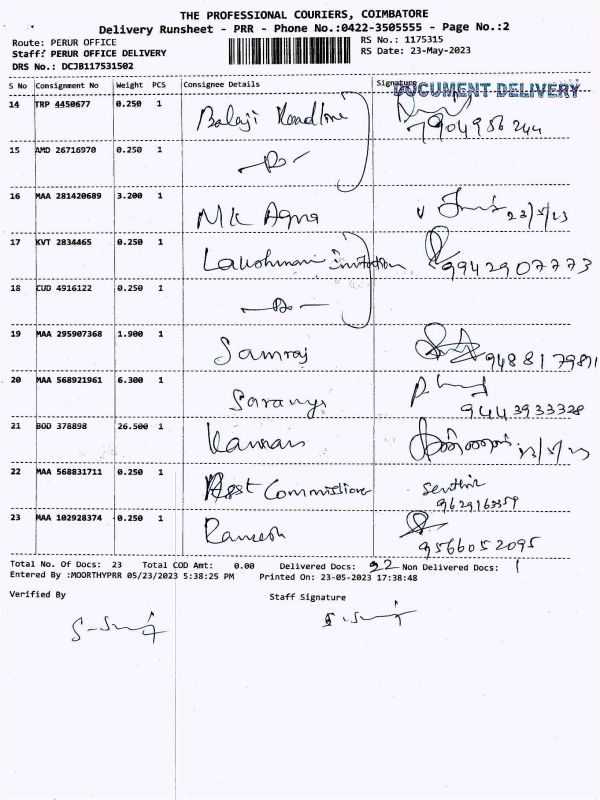 THE PROFESSIONAL COURIERS, COIMBATORE
Delivery Runsheet - PRR - Phone No.:0422-3505555 - Page No.:2
Route: PERUR OFFICE
RS No.: 1175315
Staff: PERUR OFFICE DELIVERY
RS Date: 23-May-2023
DRS No.: DCJB117531502
S No Consignment No Weight PCS Consignee Details Signature
DOCUMENT DELIVERY
14 TRP 4450677 0.250 1 Balaji
7904956244
15 AMD 26716970 0.250 1 -Do-
16 MAA 281420689 3.200 1 MK Agna 23/5/23
17 KVT 2834465 0.250 1 Lakshmani Invitation 9942907773
18 CUD 4916122 0.250 1 -Do-
19 MAA 295907368 1.900 1 Samraj 9488179871
20 MAA 568921961 6.300 1 Saranya
9443933328
21 BOD 378898 26.500 1 Kannan 23/5/23
22 MAA 568831711 0.250 1 Asst Commissioner Senthil
23 MAA 102928374 0.250 1 Ramesh
9566052095
Total No. Of Docs: 23 Total COD Amt: 0.00 Delivered Docs: 22 Non Delivered Docs: 1
Entered By :MOORTHYPRR 05/23/2023 5:38:25 PM Printed On: 23-05-2023 17:38:48
Verified By Staff Signature